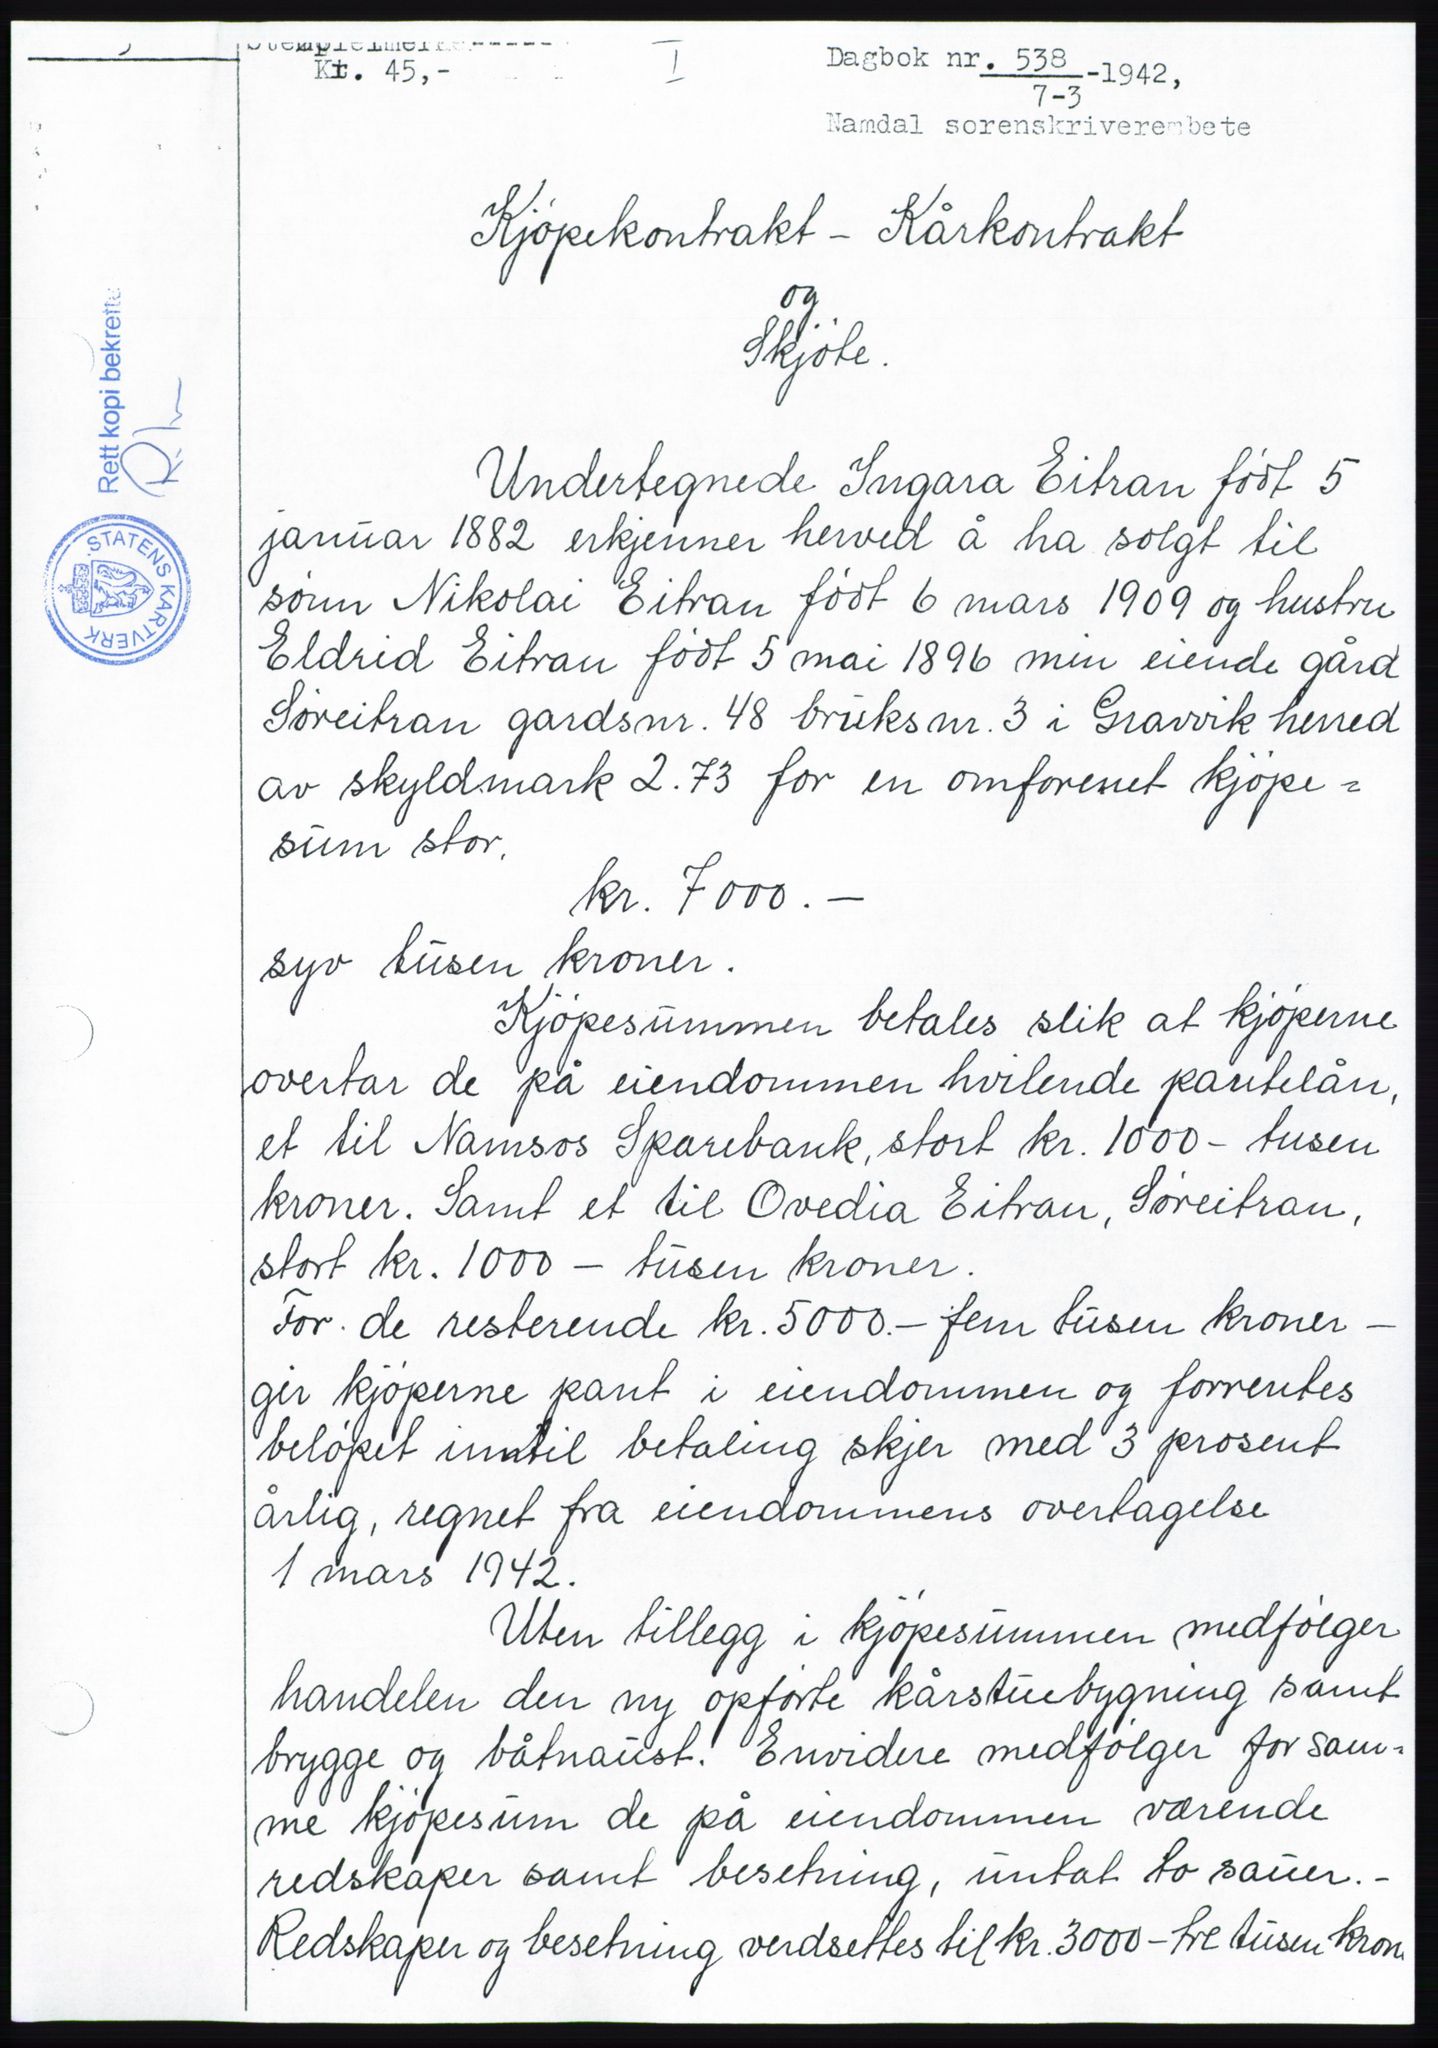 Stempelmerke
Kr. 45,-
I
Dagbok nr. 538
7-3
-1942,
Namdal sorenskriverembete
Rett kopi bekreftes
STATENS KARTVERK
Kjöpekontrakt - Kårkontrakt
og
Skjöte.
Undertegnede Ingara Eitran født 5
januar 1882 erkjenner herved å ha solgt til
sønn Nikolai Eitran født 6 mars 1909 og hustru
Eldrid Eitran født 5 mai 1896 min eiende gård
Søreitran gardsnr. 48 bruksnr. 3 i Gravvik herred
av skyldmark 2.73 for en omforenet kjöpe=
sum stor.
kr. 7000.-
syv tusen kroner.
Kjöpesummen betales slik at kjöperne
overtar de på eiendommen hvilende pantelån,
et til Namsos Sparebank, stort kr. 1000 - tusen
kroner. Samt et til Ovedia Eitran, Søreitran,
stort kr. 1000 - tusen kroner.
For de resterende kr. 5000.- fem tusen kroner -
gir kjöperne pant i eiendommen og forrentes
beløpet inntil betaling skjer med 3 prosent
årlig, regnet fra eiendommens overtagelse
1 mars 1942.
Uten tillegg i kjöpesummen medfølger
handelen den ny opførte kårstuebygning samt
brygge og båtnaust. Envidere medfølger for sam=
me kjöpesum de på eiendommen værende
redskaper samt besetning, untat to sauer.-
Redskaper og besetning verdsettes til kr. 3000 - tre tusen kron